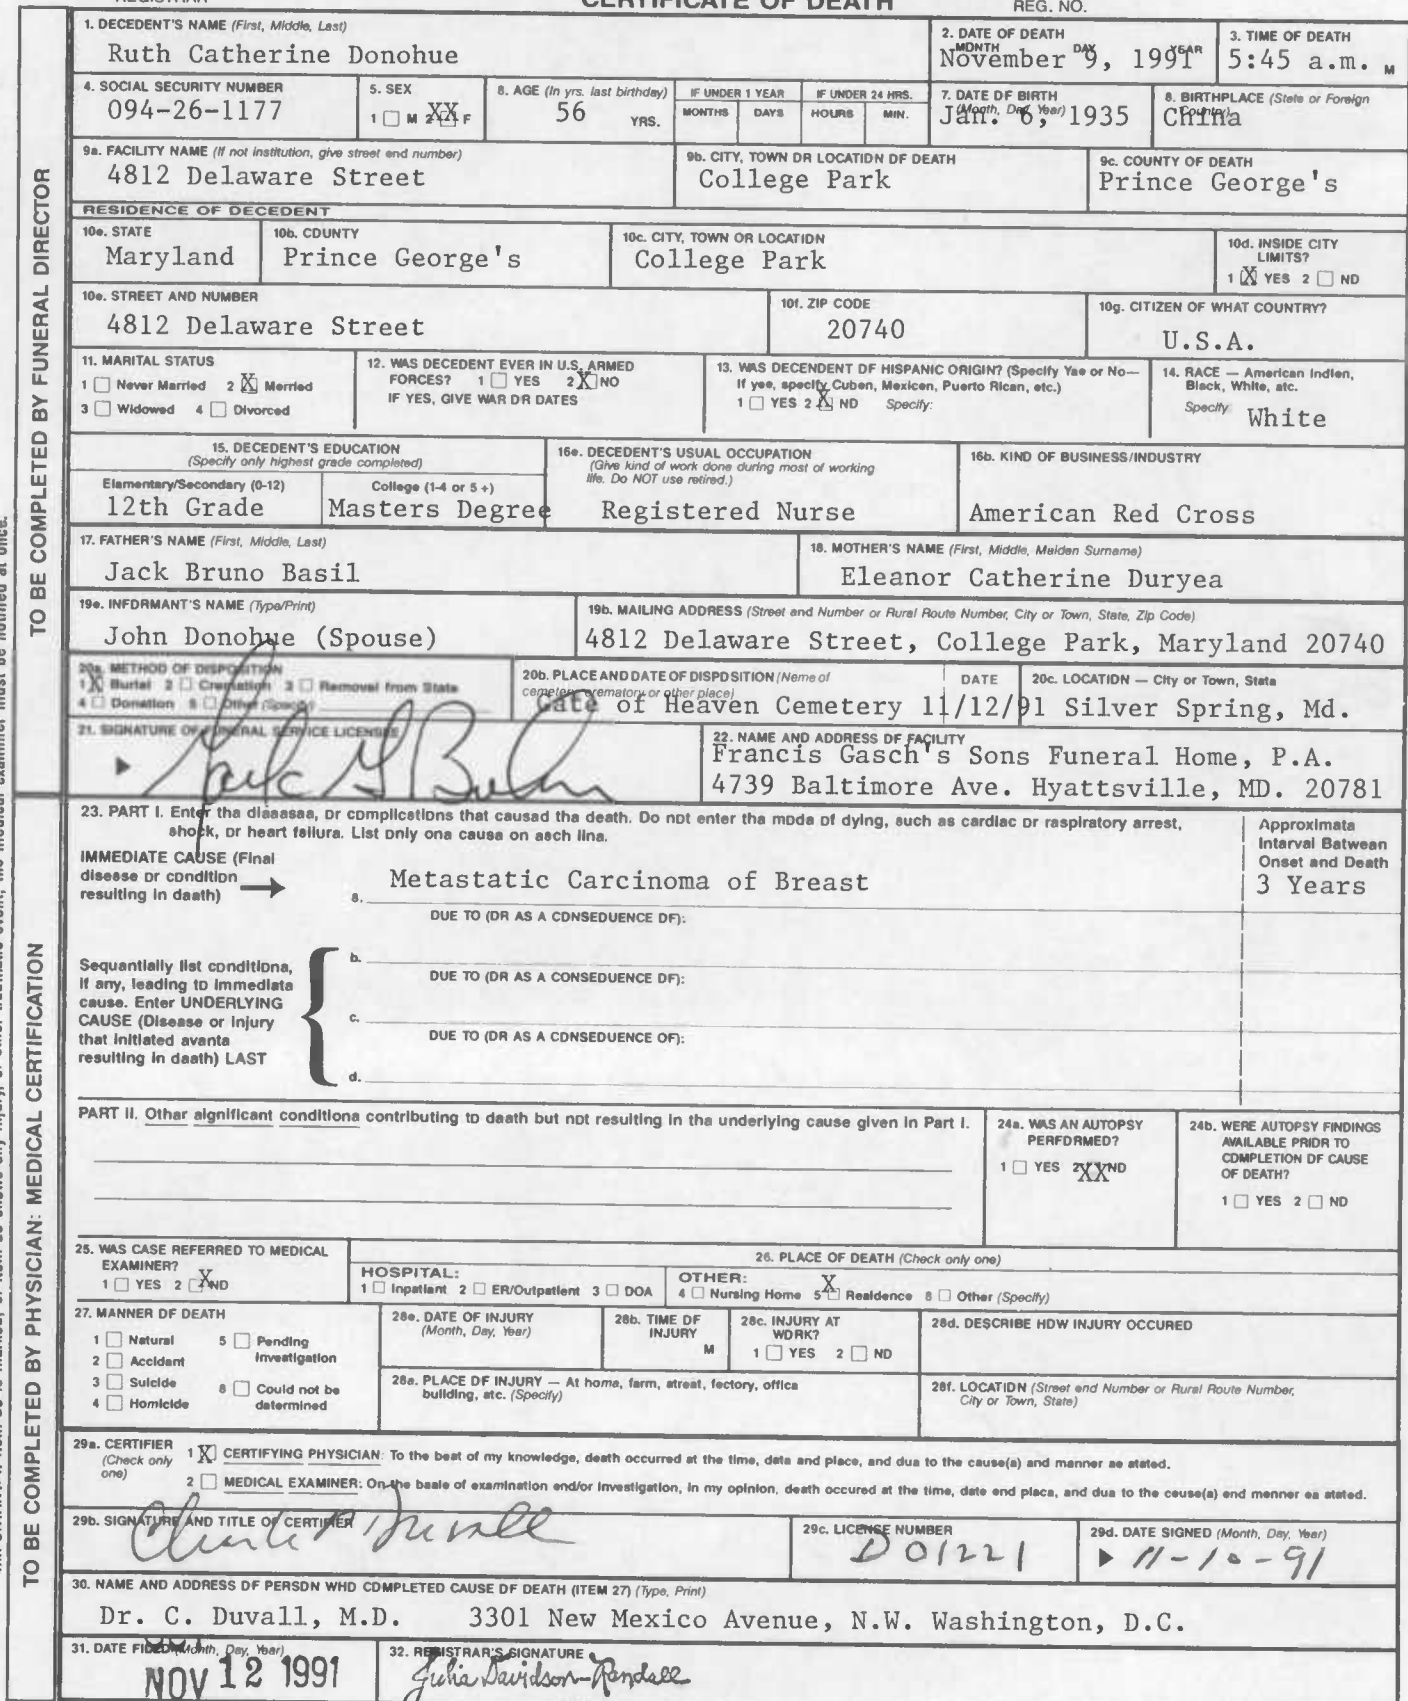 CERTIFICATE OF DEATH
REG. NO.
1. DECEDENT'S NAME (First, Middle, Last)
Ruth Catherine Donohue
2. DATE OF DEATH
MONTH DAY YEAR
November 9, 1991
3. TIME OF DEATH
5:45 a.m. M
4. SOCIAL SECURITY NUMBER
094-26-1177
5. SEX
1 M 2 XX F
6. AGE (In yrs. last birthday)
56 YRS.
IF UNDER 1 YEAR
MONTHS DAYS
IF UNDER 24 HRS.
HOURS MIN.
7. DATE OF BIRTH
(Month, Day, Year)
Jan. 6, 1935
8. BIRTHPLACE (State or Foreign Country)
China
9a. FACILITY NAME (If not institution, give street and number)
4812 Delaware Street
9b. CITY, TOWN OR LOCATION OF DEATH
College Park
9c. COUNTY OF DEATH
Prince George's
RESIDENCE OF DECEDENT
10a. STATE
Maryland
10b. COUNTY
Prince George's
10c. CITY, TOWN OR LOCATION
College Park
10d. INSIDE CITY
LIMITS?
1 X YES 2 NO
10e. STREET AND NUMBER
4812 Delaware Street
10f. ZIP CODE
20740
10g. CITIZEN OF WHAT COUNTRY?
U.S.A.
11. MARITAL STATUS
1 Never Married 2 X Married
3 Widowed 4 Divorced
12. WAS DECEDENT EVER IN U.S. ARMED
FORCES? 1 YES 2 X NO
IF YES, GIVE WAR OR DATES
13. WAS DECENDENT OF HISPANIC ORIGIN? (Specify Yes or No—
If yes, specify Cuban, Mexican, Puerto Rican, etc.)
1 YES 2 X NO Specify:
14. RACE — American Indian,
Black, White, atc.
Specify White
15. DECEDENT'S EDUCATION
(Specify only highest grade completed)
Elementary/Secondary (0-12)
12th Grade
College (1-4 or 5 +)
Masters Degree
16a. DECEDENT'S USUAL OCCUPATION
(Give kind of work done during most of working
life. Do NOT use retired.)
Registered Nurse
16b. KIND OF BUSINESS/INDUSTRY
American Red Cross
17. FATHER'S NAME (First, Middle, Last)
Jack Bruno Basil
18. MOTHER'S NAME (First, Middle, Maiden Surname)
Eleanor Catherine Duryea
19a. INFORMANT'S NAME (Type/Print)
John Donohue (Spouse)
19b. MAILING ADDRESS (Street and Number or Rural Route Number, City or Town, State, Zip Code)
4812 Delaware Street, College Park, Maryland 20740
20a. METHOD OF DISPOSITION
1 X Burial 2 Cremation 3 Removal from State
4 Donation 5 Other (Specify)
20b. PLACE AND DATE OF DISPOSITION (Name of
cemetery, crematory or other place)
DATE
Gate of Heaven Cemetery 11/12/91
20c. LOCATION — City or Town, State
Silver Spring, Md.
21. SIGNATURE OF FUNERAL SERVICE LICENSEE
22. NAME AND ADDRESS OF FACILITY
Francis Gasch's Sons Funeral Home, P.A.
4739 Baltimore Ave. Hyattsville, MD. 20781
TO BE COMPLETED BY FUNERAL DIRECTOR
23. PART I. Enter the diseases, or complications that caused the death. Do not enter the mode of dying, such as cardiac or respiratory arrest,
shock, or heart failure. List only one cause on each line.
Approximate
Interval Between
Onset and Death
IMMEDIATE CAUSE (Final
disease or condition
resulting in death)
a. Metastatic Carcinoma of Breast
3 Years
DUE TO (OR AS A CONSEQUENCE OF):
Sequentially list conditions,
if any, leading to immediate
cause. Enter UNDERLYING
CAUSE (Disease or injury
that initiated events
resulting in death) LAST
b.
DUE TO (OR AS A CONSEQUENCE OF):
c.
DUE TO (OR AS A CONSEQUENCE OF):
d.
PART II. Other significant conditions contributing to death but not resulting in the underlying cause given in Part I.
24a. WAS AN AUTOPSY
PERFORMED?
1 YES 2 XX NO
24b. WERE AUTOPSY FINDINGS
AVAILABLE PRIOR TO
COMPLETION OF CAUSE
OF DEATH?
1 YES 2 NO
25. WAS CASE REFERRED TO MEDICAL
EXAMINER?
1 YES 2 X NO
26. PLACE OF DEATH (Check only one)
HOSPITAL:
1 Inpatient 2 ER/Outpatient 3 DOA
OTHER:
4 Nursing Home 5 X Residence 6 Other (Specify)
27. MANNER OF DEATH
1 Natural 5 Pending
Investigation
2 Accident
3 Suicide 6 Could not be
determined
4 Homicide
28a. DATE OF INJURY
(Month, Day, Year)
28b. TIME OF
INJURY
M
28c. INJURY AT
WORK?
1 YES 2 NO
28d. DESCRIBE HOW INJURY OCCURED
28e. PLACE OF INJURY — At home, farm, street, factory, office
building, etc. (Specify)
28f. LOCATION (Street and Number or Rural Route Number,
City or Town, State)
29a. CERTIFIER
(Check only
one)
1 X CERTIFYING PHYSICIAN: To the best of my knowledge, death occurred at the time, date and place, and due to the cause(s) and manner as stated.
2 MEDICAL EXAMINER: On the basis of examination and/or investigation, in my opinion, death occured at the time, date and place, and due to the cause(s) and manner as stated.
29b. SIGNATURE AND TITLE OF CERTIFIER
Charles Duvall
29c. LICENSE NUMBER
D01221
29d. DATE SIGNED (Month, Day, Year)
11-10-91
30. NAME AND ADDRESS OF PERSON WHO COMPLETED CAUSE OF DEATH (ITEM 27) (Type, Print)
Dr. C. Duvall, M.D. 3301 New Mexico Avenue, N.W. Washington, D.C.
31. DATE FILED (Month, Day, Year)
NOV 12 1991
32. REGISTRAR'S SIGNATURE
Julia Davidson-Randall
TO BE COMPLETED BY PHYSICIAN: MEDICAL CERTIFICATION